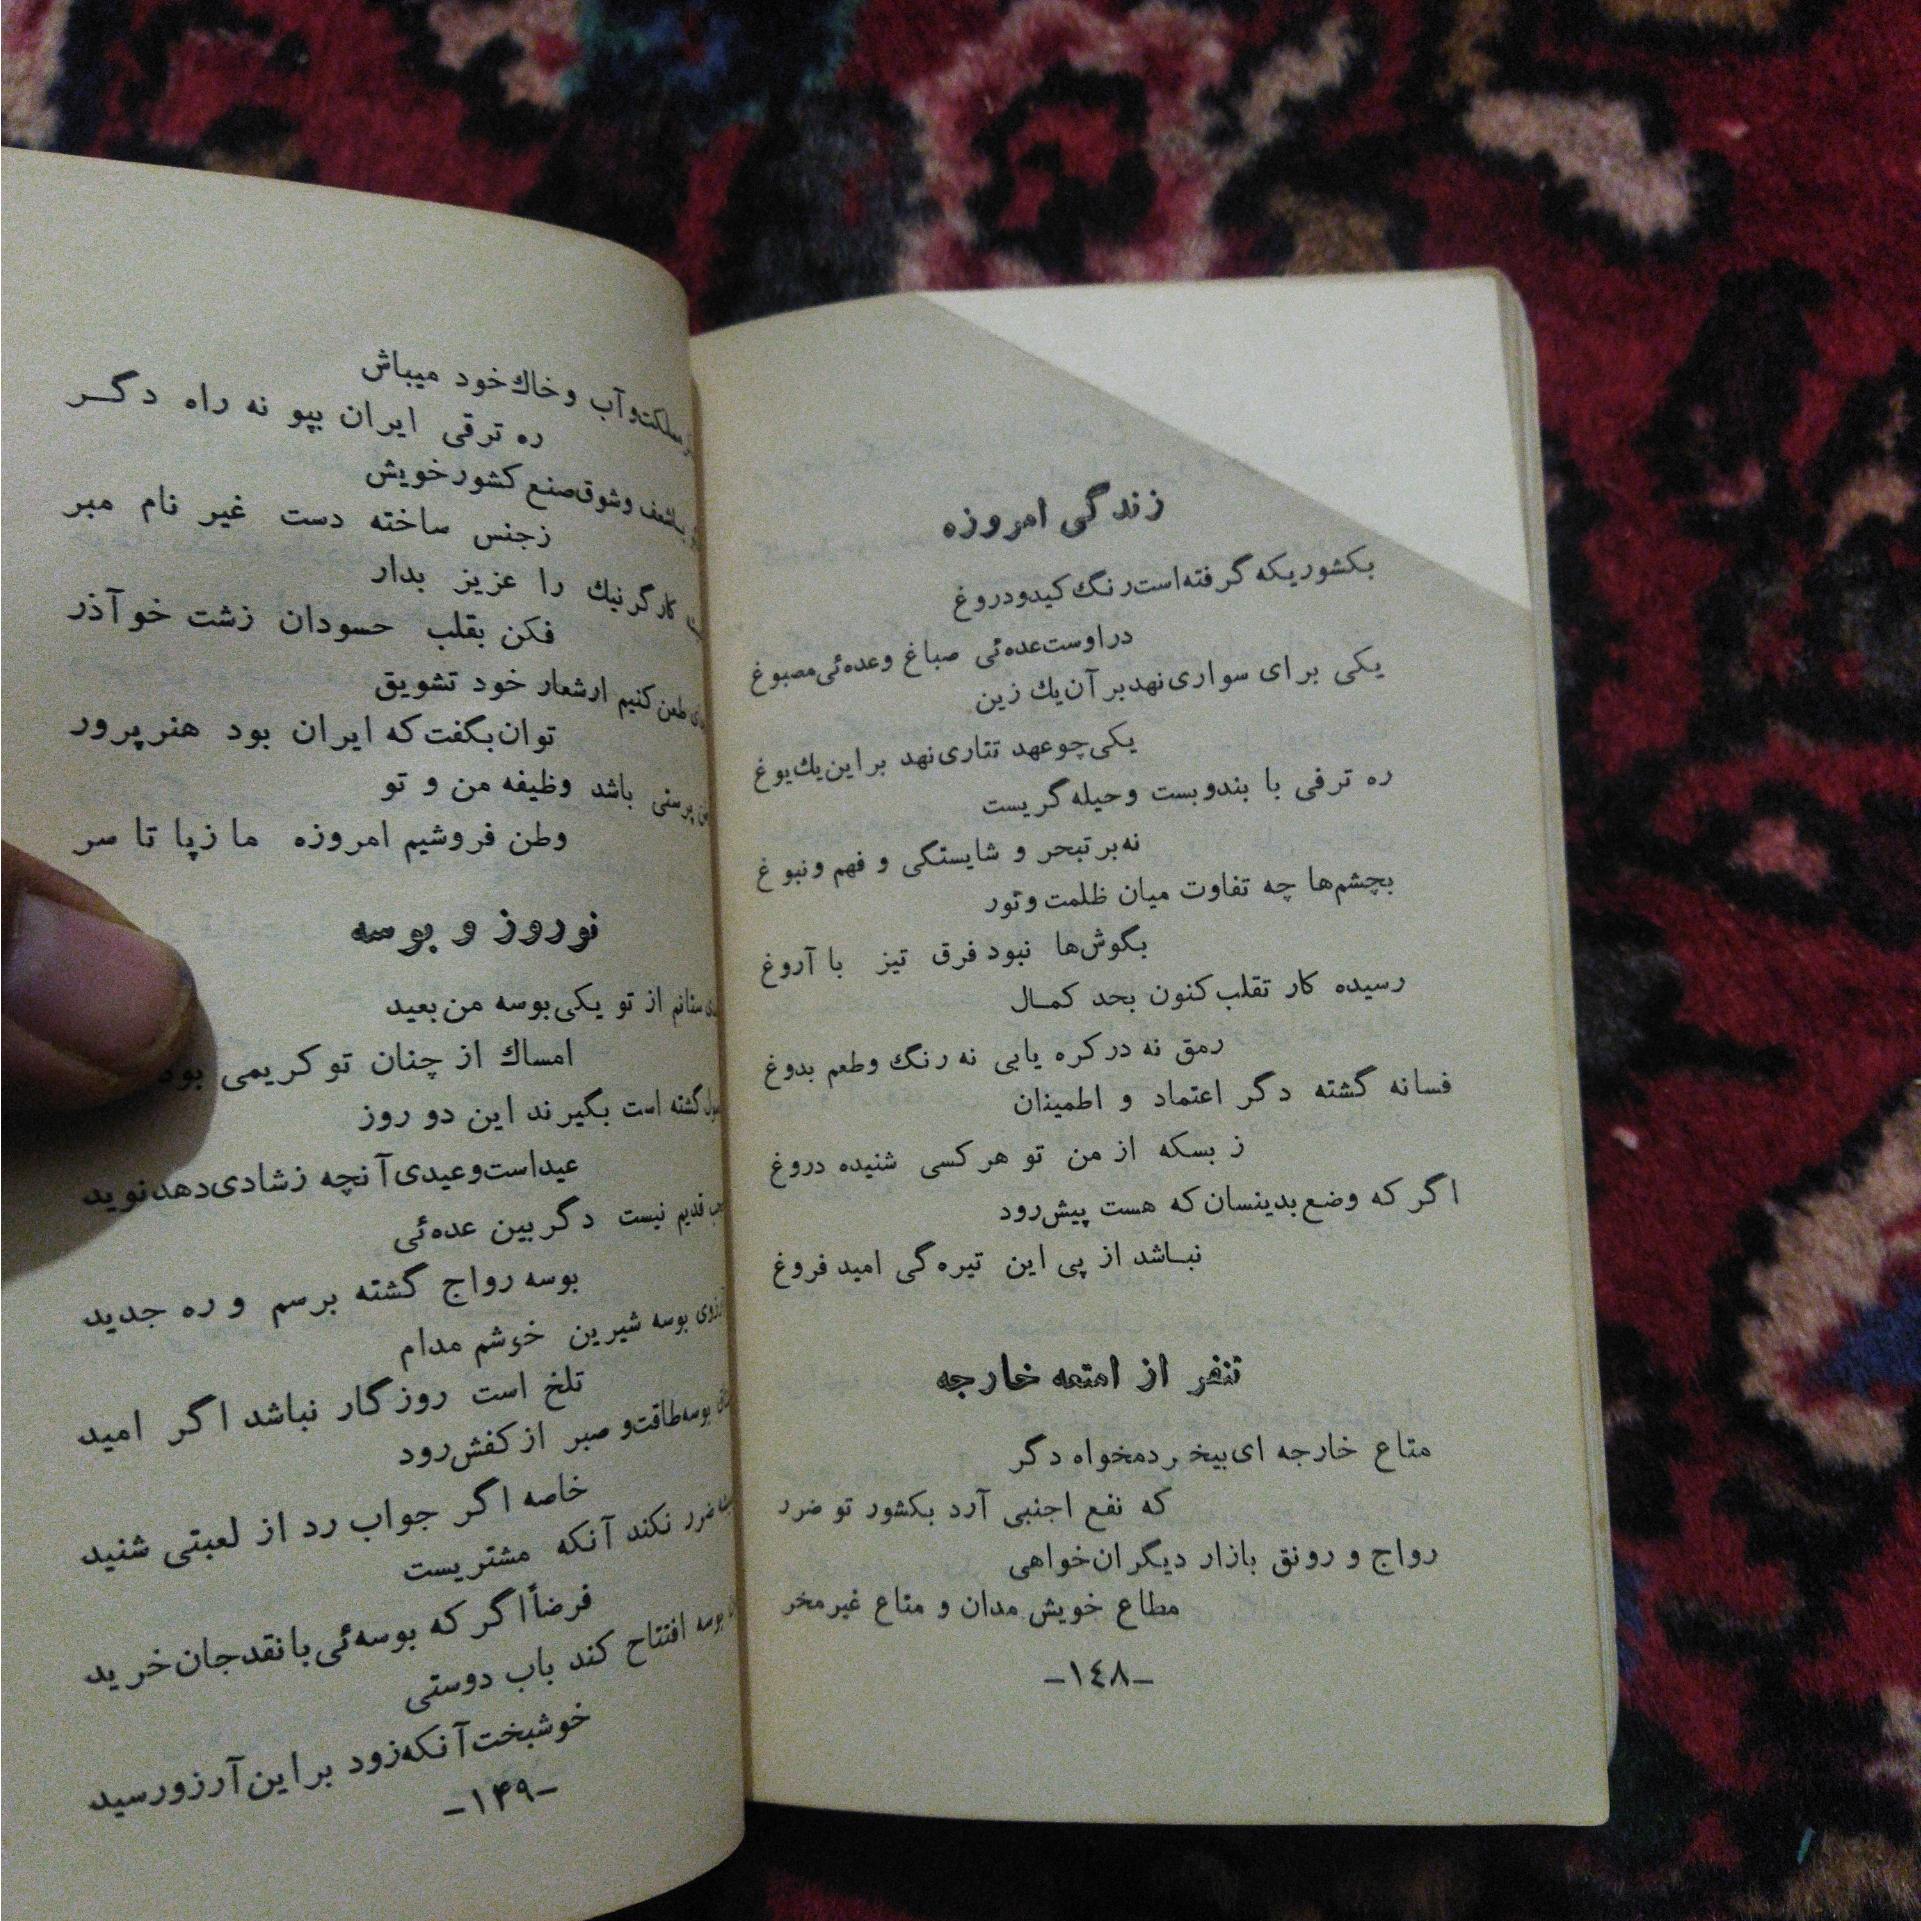 زندگی امروزه
بکشوریکه گرفته‌است رنگ کیدودروغ
دراوست عده‌ئی صباغ وعده‌ئی مصبوغ
یکی برای سواری نهد بر آن یك زین
یکی چو عهد تتاری نهد بر این یك یوغ
ره ترقی با بندوبست وحیله گریست
نه بر تبحر و شایستگی و فهم ونبوغ
بچشم‌ها چه تفاوت میان ظلمت ونور
بگوش‌ها نبود فرق تیز با آروغ
رسیده کار تقلب کنون بحد کمـال
رمق نه در کره یابی نه رنگ وطعم بدوغ
فسانه گشته دگر اعتماد و اطمینان
ز بسکه از من تو هر کسی شنیده دروغ
اگر که وضع بدینسان که هست پیش رود
نبـاشد از پی این تیره گی امید فروغ
تنفر از امتعه خارجه
متاع خارجه ای بیخردمخواه دگر
که نفع اجنبی آرد بکشور تو ضرر
رواج و رونق بازار دیگران خواهی
مطاع خویش مدان و متاع غیر مخر
-۱٤۸-
مملکت و آب و خاك خود میباش
ره ترقی ایران بپو نه راه دگـــر
شعف وشوق صنع کشور خویش
زجنس ساخته دست غیر نام مبر
کارگر نیك را عزیز بدار
فکن بقلب حسودان زشت خو آذر
طعن کنیم ارشعار خود تشویق
توان بگفت که ایران بود هنر پرور
پرستی باشد وظیفه من و تو
وطن فروشیم امروزه ما زپا تا سر
نوروز و بوسه
ستانم از تو یکی بوسه من بعید
امساك از چنان تو کریمی بود
گشته است بگیرند این دو روز
عیداست وعیدی آنچه زشادی دهد نوید
قدیم نیست دگر بین عده‌ئی
بوسه رواج گشته برسم و ره جدید
بوسه شیرین خوشم مدام
تلخ است روزگار نباشد اگر امید
بوسه طاقت و صبر از کفش رود
خاصه اگر جواب رد از لعبتی شنید
ضرر نکند آنکه مشتریست
فرضاً اگر که بوسه‌ئی با نقد جان خرید
بوسه افتتاح کند باب دوستی
خوشبخت آنکه زود بر این آرزو رسید
-۱۴۹-